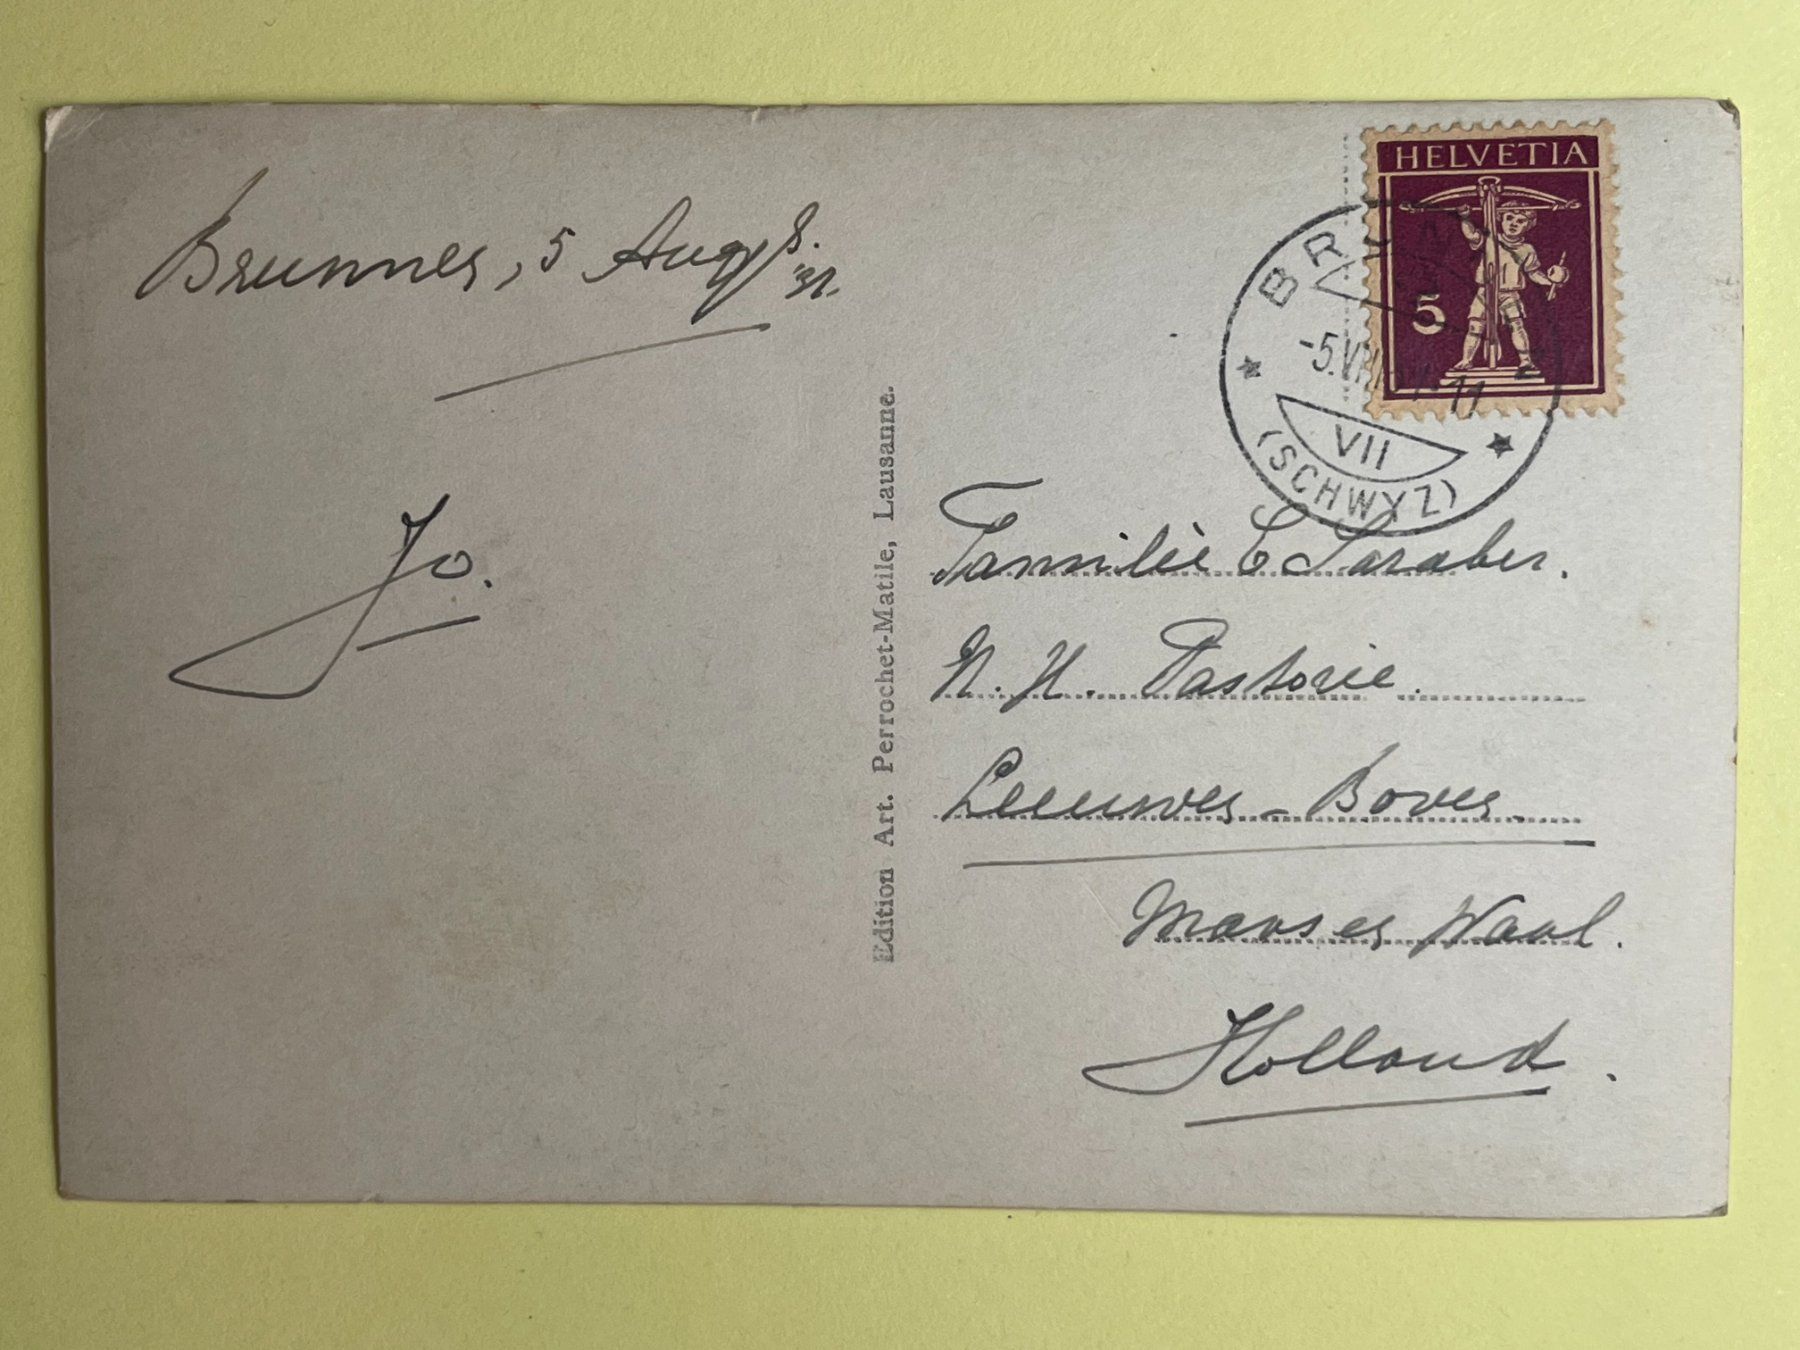 Brunnen, 5 Aug
'31.
Jo.
Edition Art. Perrochet-Matile, Lausanne.
HELVETIA
5
BR
-5.VIII
11
VII
(SCHWYZ)
Familie C Saraber.
N. H. Pastorie.
Leeuwen-Boven
Maas en Waal.
Holland.